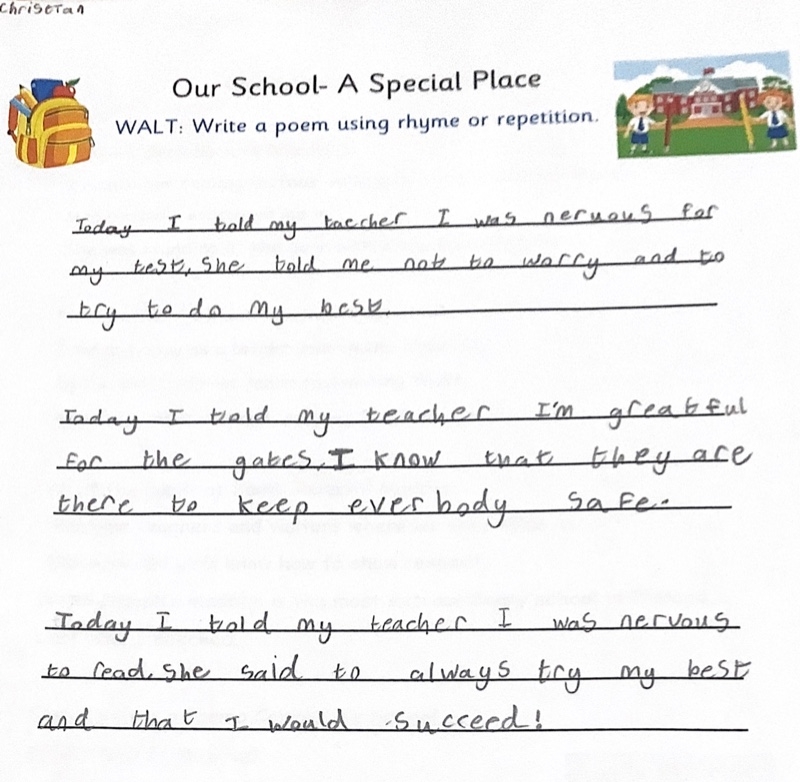 Christan
Our School- A Special Place
WALT: Write a poem using rhyme or repetition.
Today I told my taecher I was nervous for
my test, She told me not to worry and to
try to do my best.
Today I told my teacher I'm greatful
For the gates. I know that they are
there to keep everbody safe.
Today I told my teacher I was nervous
to read. She said to always try my best
and that I would succeed!